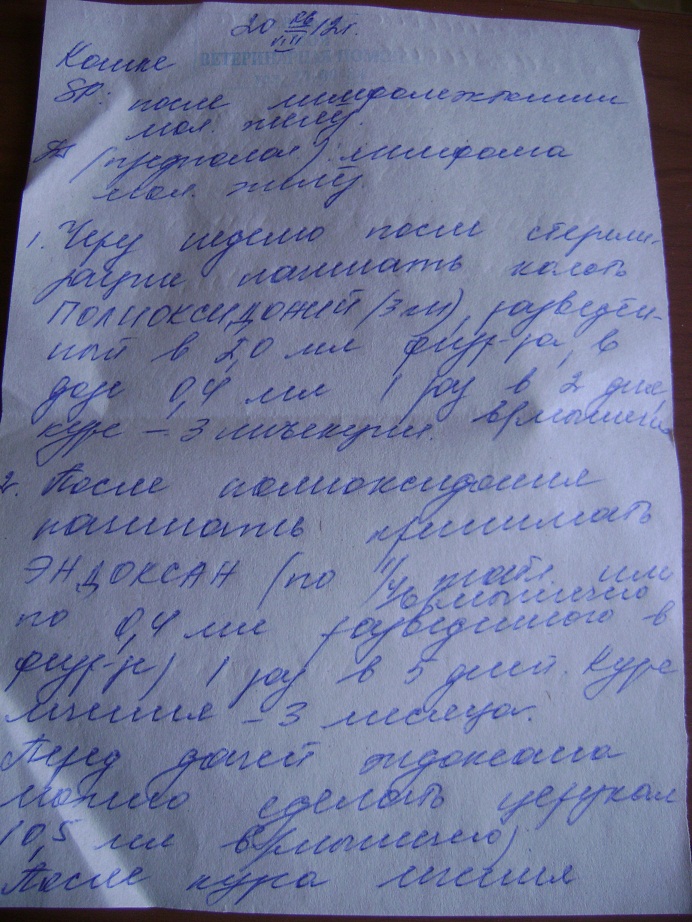 20 XII 12г.
ВЕТЕРИНАРНАЯ ПОМОЩЬ
Кошке
SP: после лимфомэктомии
мол. желёз.
Ds (предполож): лимфома
мол. желёз.
1. Через неделю после стерили-
зации начинать колоть
ПОЛИОКСИДОНИЙ (3 мг), разведён-
ный в 2,0 мл физр-ра, в
дозе 0,4 мл 1 раз в 2 дня,
курс – 3 инъекции. в/мышечно
2. После полиоксидония
начинать принимать
ЭНДОКСАН (по 1/4 табл. или
в/мышечно
по 0,4 мл разведённого в
физр-ре) 1 раз в 5 дней. Курс
лечения – 3 месяца.
Перед дачей эндоксана
можно сделать церукал
(0,5 мл в/мышечно)
После курса лечения